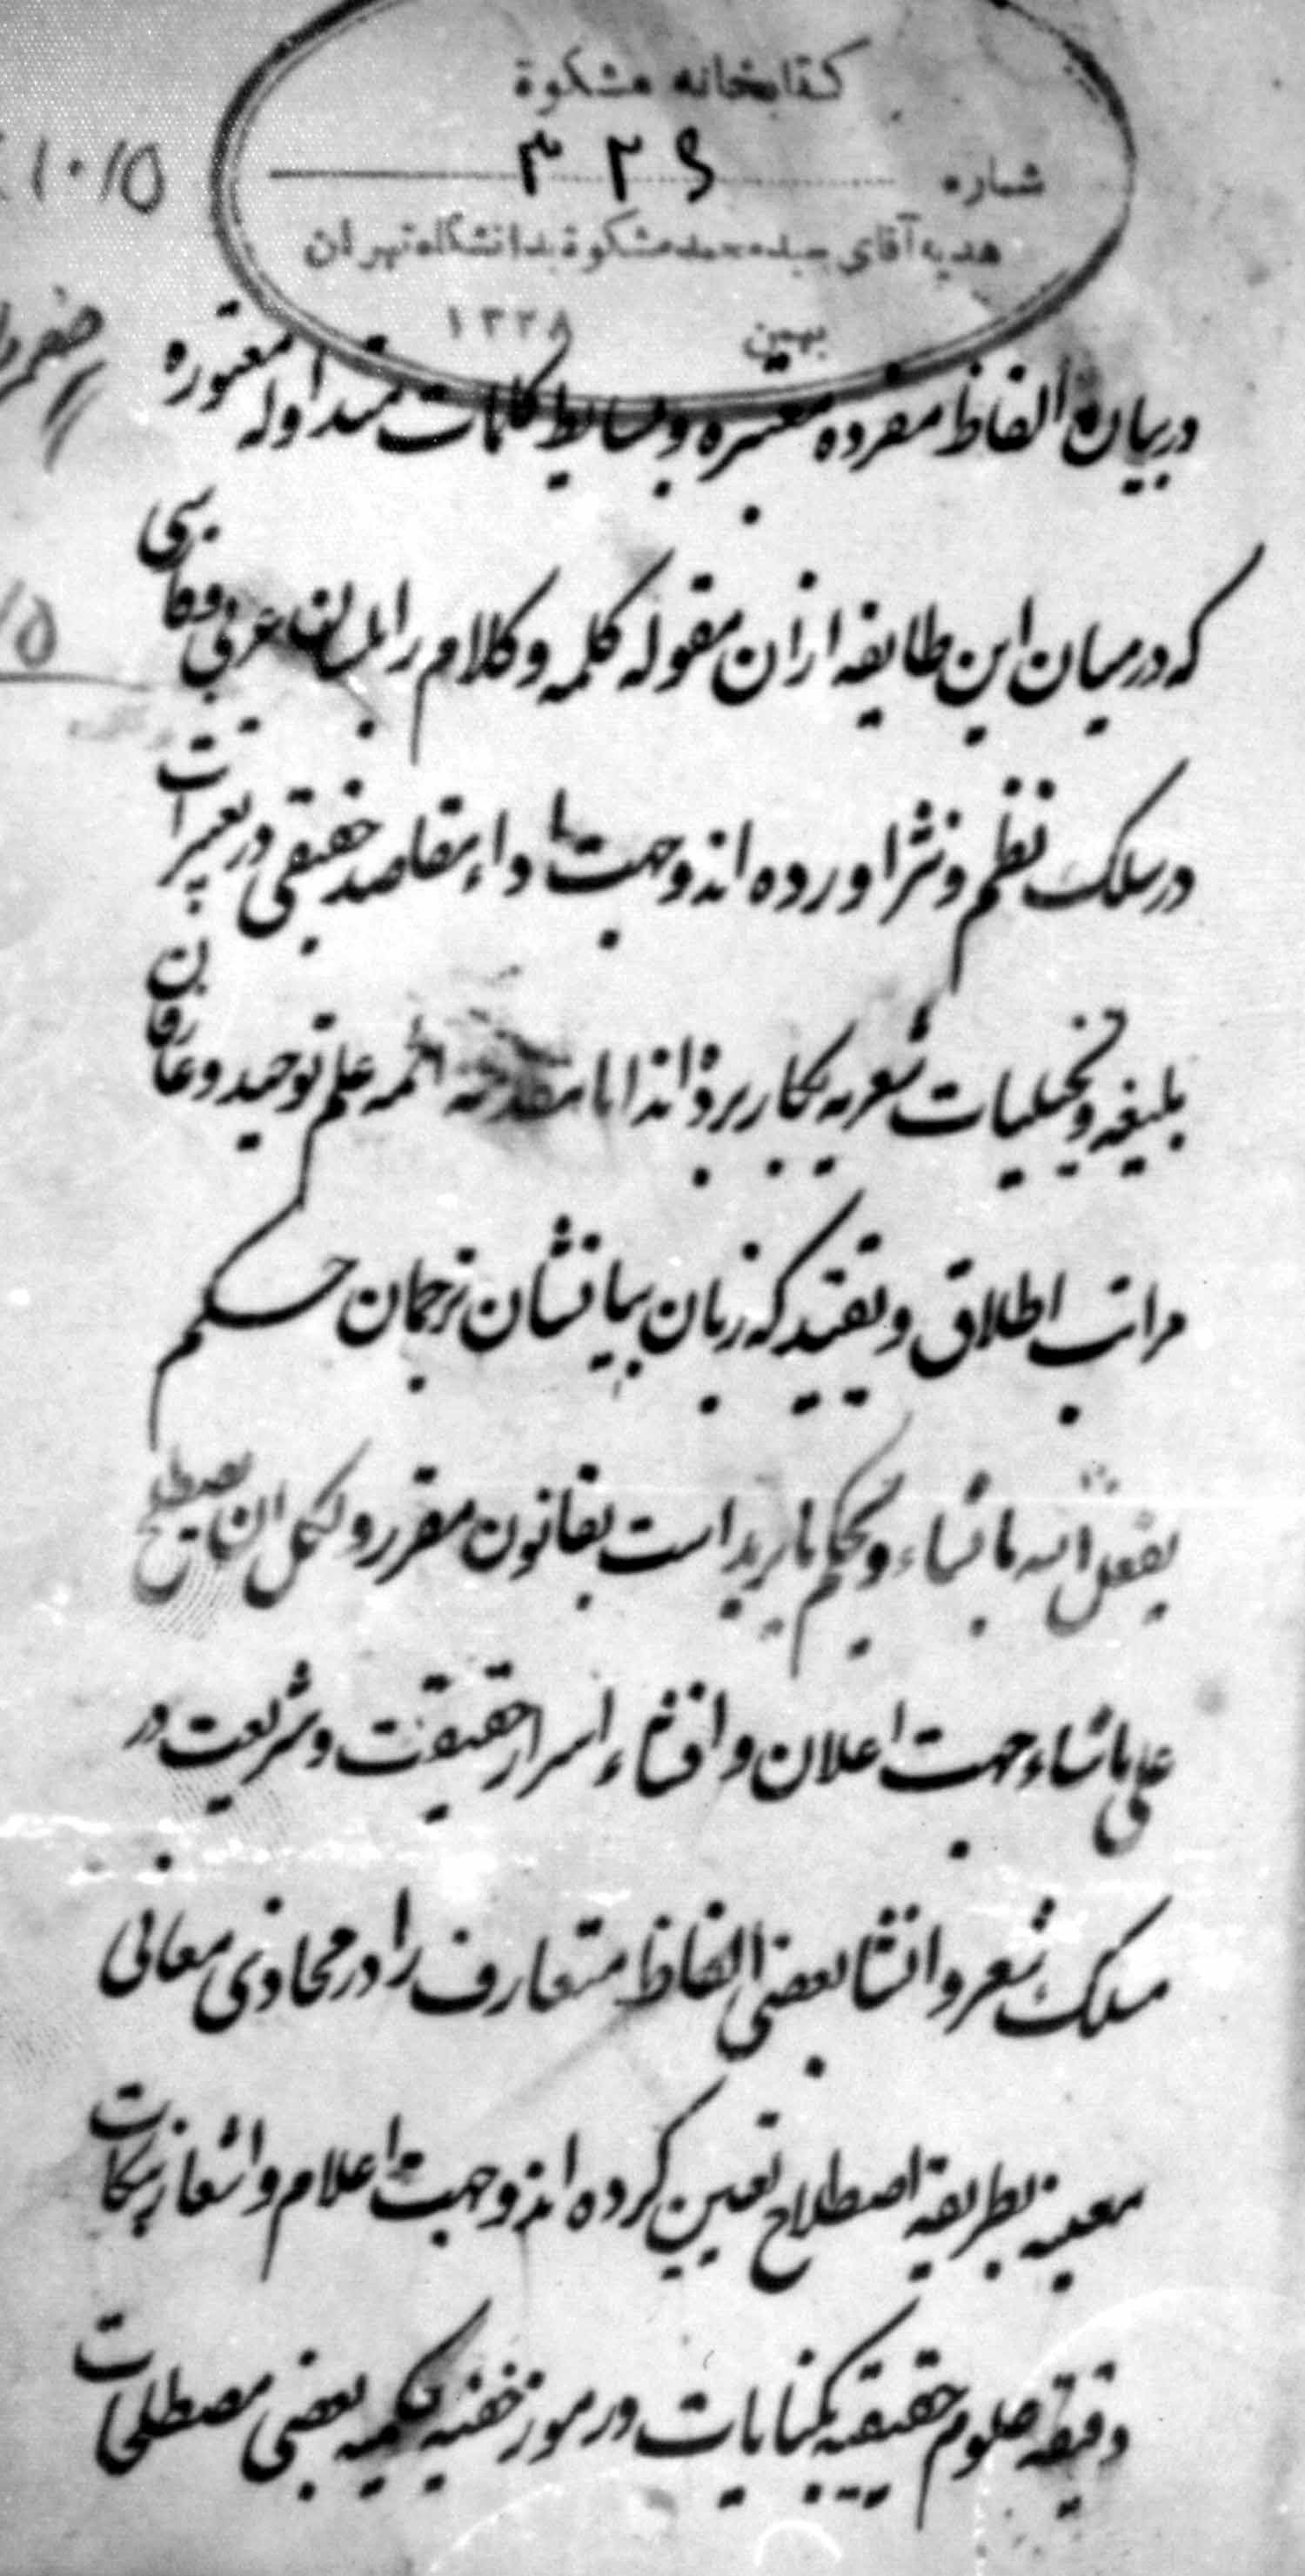 کتابخانه مشکوة
شماره ۳۲۶
هدیه آقای سید محمد مشکوة بدانشگاه تهران
بهمن ۱۳۲۸
۱۰/۵
در بیان الفاظ مفرده معتبره و بسایط کلمات متداوله معتوره
که در میان این طایفه از ان مقوله کلمه و کلام را بلسان عربی و فارسی
در سلک نظم و نثر اورده اند و جهت اداء مقاصد حقیقی در تعبیرات
بلیغه و تخییلیات شعریه بکار برده اند اما ائمه علم توحید و عارفان
مراتب اطلاق و تقیید که زبان بیانشان ترجمان حکم
یفعل الله ما یشاء و یحکم ما یرید است بقانون مقرر و لکل ان یصطلح
علی ما شاء جهت اعلان و افشاء اسرار حقیقت و شریعت در
سلک شعر و انشا بعضی الفاظ متعارف را در محاذی معانی
معینه بطریقه اصطلاح تعیین کرده اند و جهت اعلام و اشعار بنکات
دقیقه علوم حقیقیه بکنایات و رموز خفیه حکمیه بعضی مصطلحات